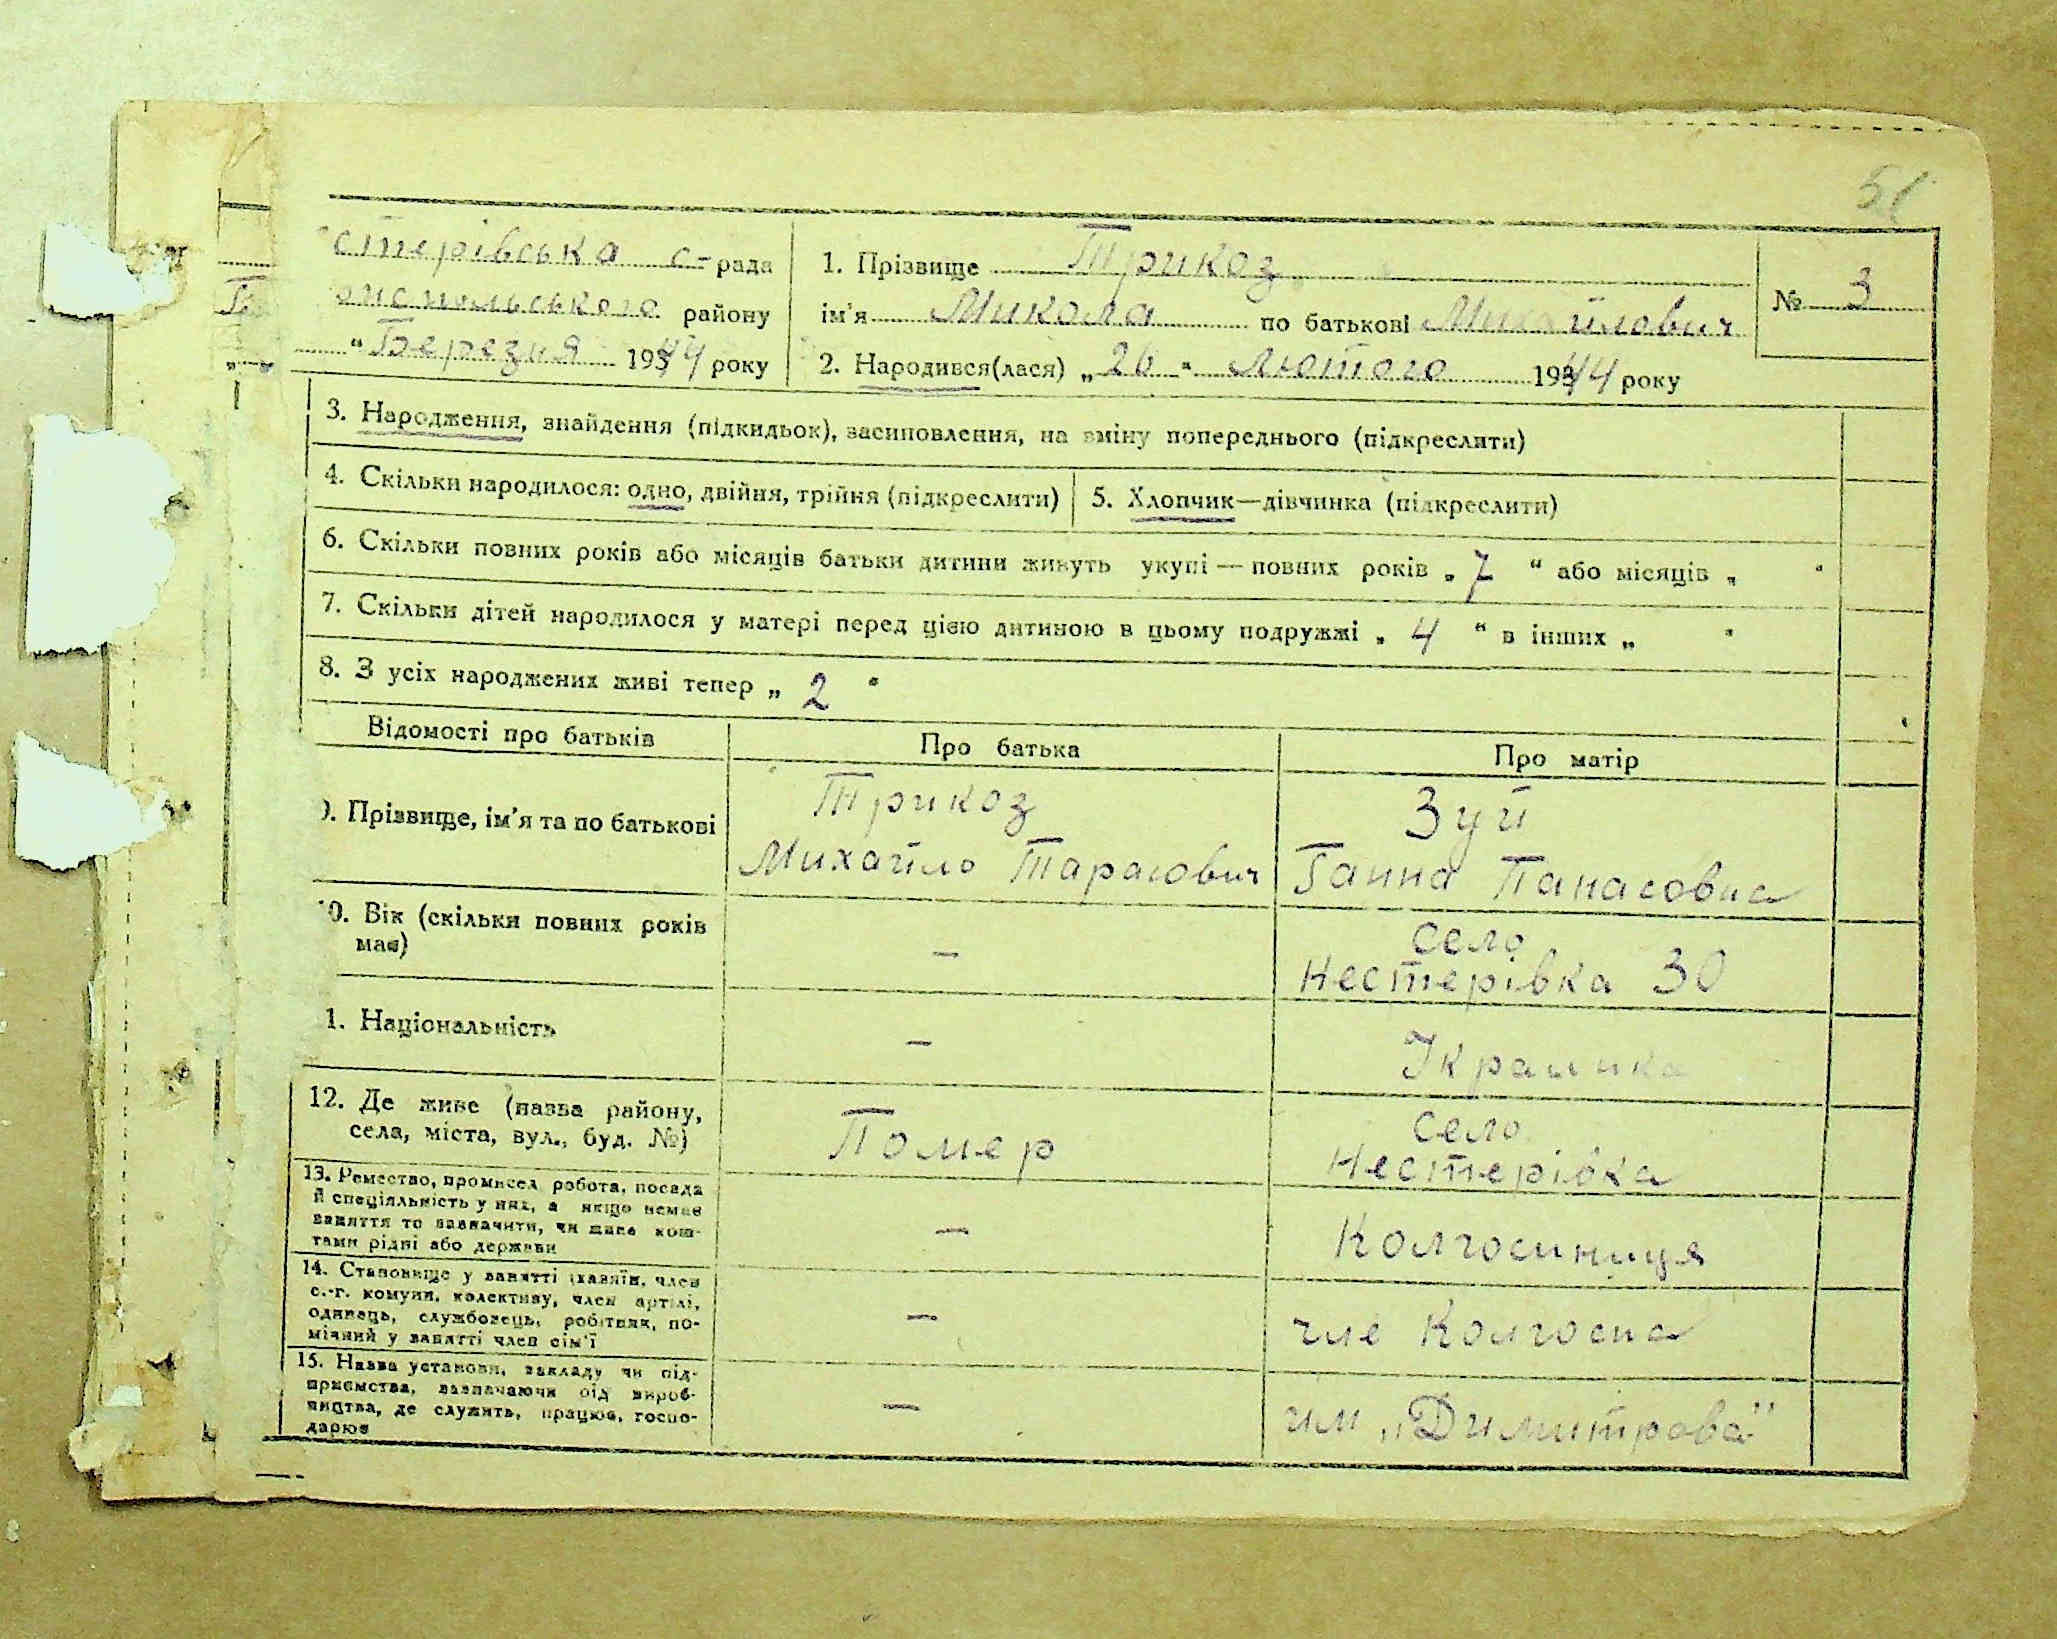 51
стерівська с-рада
ониспольського району
"Березня 1944 року
1. Прізвище Трикоз
ім'я Микола по батькові Михайлович
2. Народився(лася) „26" лютого 1944 року
№ 3
3. Народження, знайдення (підкидьок), засиновлення, на зміну попереднього (підкреслити)
4. Скільки народилося: одно, двійня, трійня (підкреслити)
5. Хлопчик—дівчинка (підкреслити)
6. Скільки повних років або місяців батьки дитини живуть укупі — повних років „ 7 " або місяців „ "
7. Скільки дітей народилося у матері перед цією дитиною в цьому подружжі „ 4 " в інших „ "
8. З усіх народжених живі тепер „ 2 "
Відомості про батьків
Про батька
Про матір
9. Прізвище, ім'я та по батькові
Трикоз
Михайло Тарасович
Зуй
Ганна Панасовна
10. Вік (скільки повних років
має)
—
село
Нестерівка 30
1. Національність
—
Украинка
12. Де живе (назва району,
села, міста, вул., буд. №)
Помер
село
Нестерівка
13. Ремество, промисел, робота, посада
й спеціяльність у них, а якщо немає
заняття то зазначити, чи живе кош-
тами рідні або держави
—
Колгоспниця
14. Становище у занятті (хазяїн, член
с.-г. комуни, колективу, член артілі,
одинець, службовець, робітник, по-
мічний у занятті член сім'ї
—
чле Колгоспа
15. Назва установи, закладу чи під-
приємства, зазначаючи рід вироб-
ництва, де служить, працює, госпо-
дарює
—
им „Димитрова"